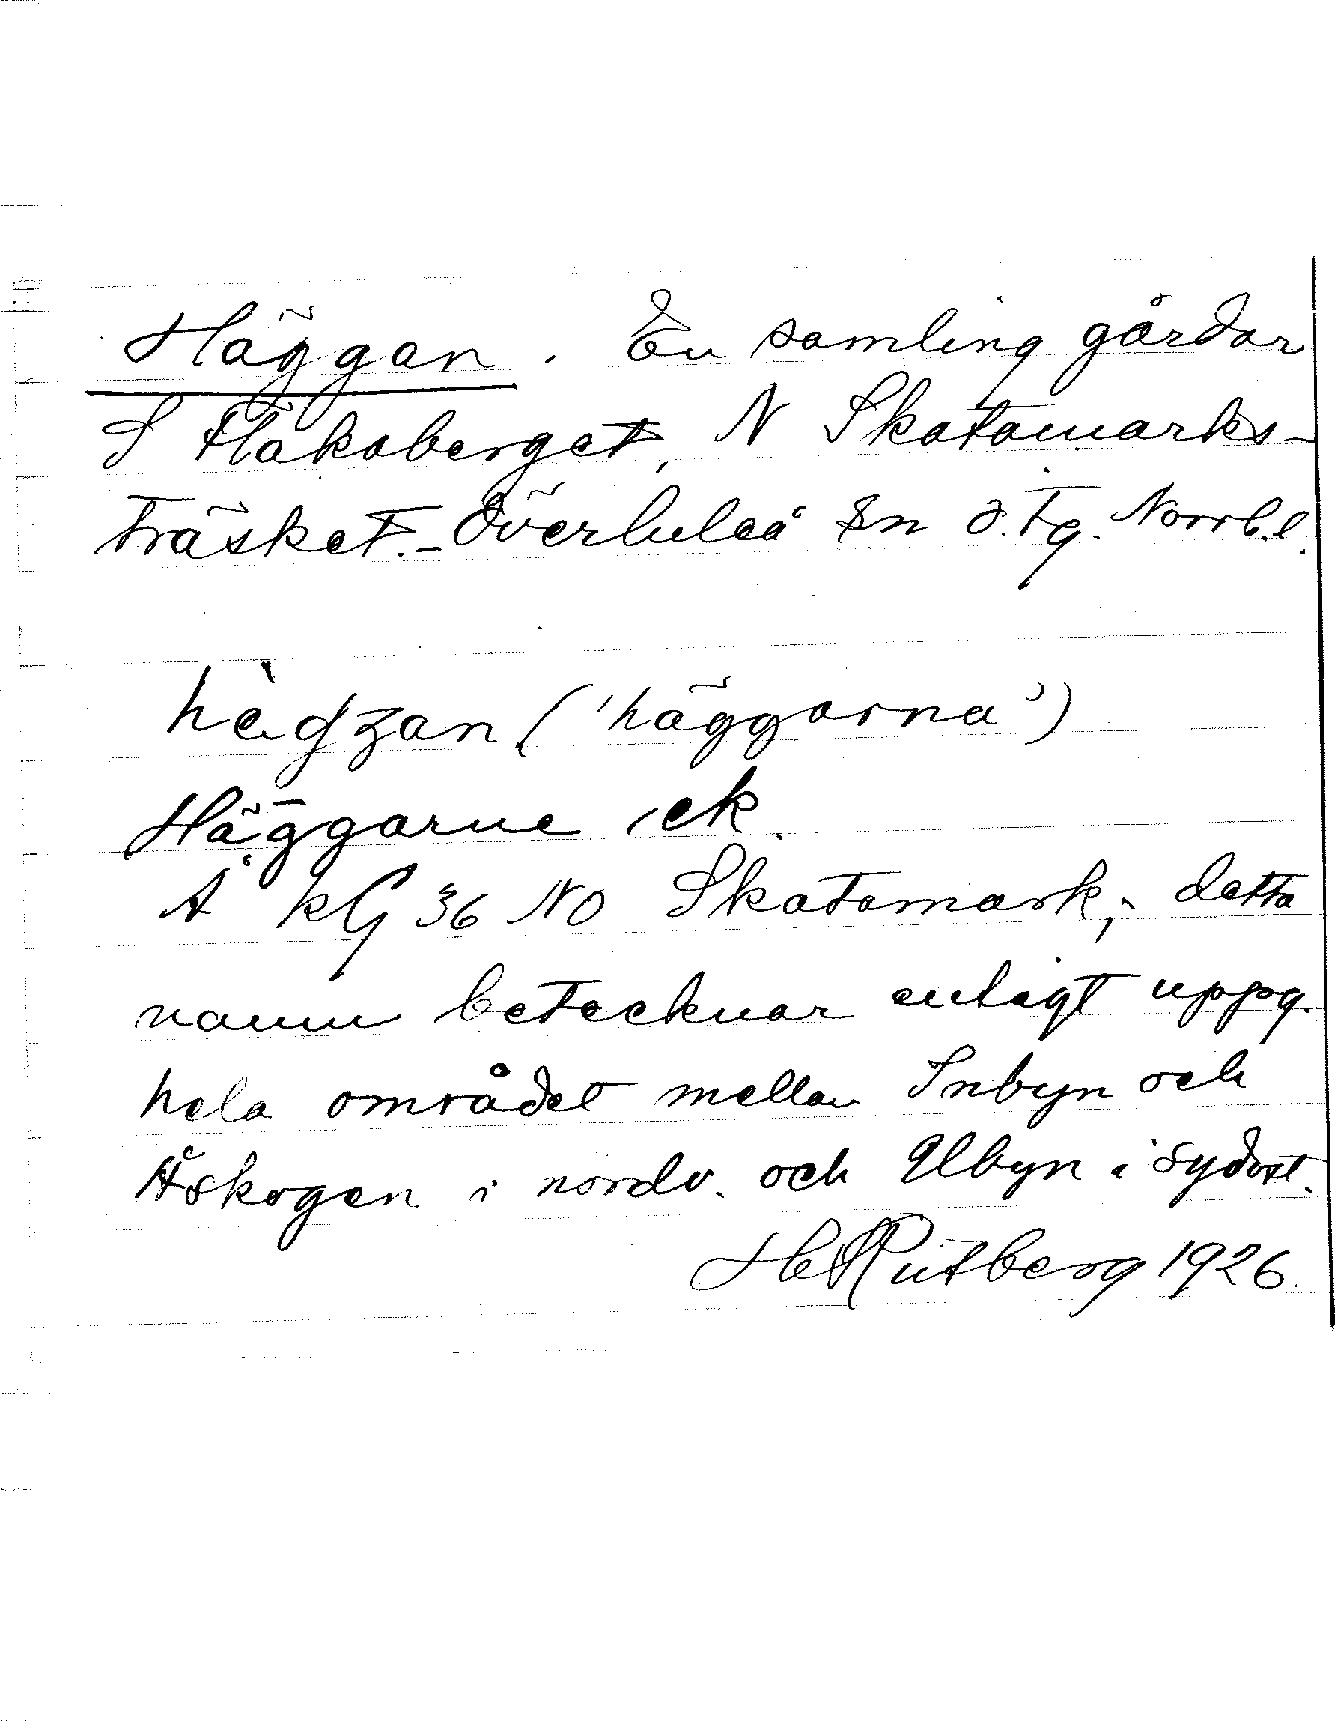 Häggan. En samling gårdar
S Flakaberget, N Skatamarks-
träsket. - Överluleå sn ö. tg. Norrb. l.
hägzan ('häggarna')
Häggarne, ek.
Å kG 36 NO Skatamark; detta
namn betecknar enligt uppg.
hela området mellan Inbyn och
Åskogen i nordv. och Ulbyn i sydost.
H Rutberg 1926.